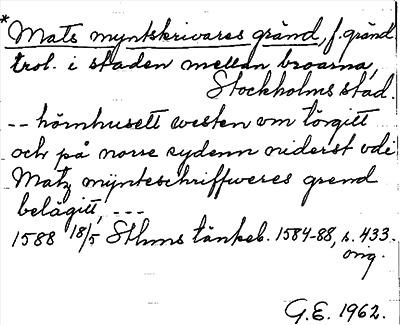 *Mats myntskrivares gränd, f. gränd
trol. i staden mellan broarna,
Stockholms stad.
-- hörnhusett westen om törgitt
och på norre sydenn niderst vdi
Matz mijnteschriffweres grend
belägitt, ---
1588 18/5 Sthms tänkeb. 1584-88, s. 433.
orig.
G.E. 1962.